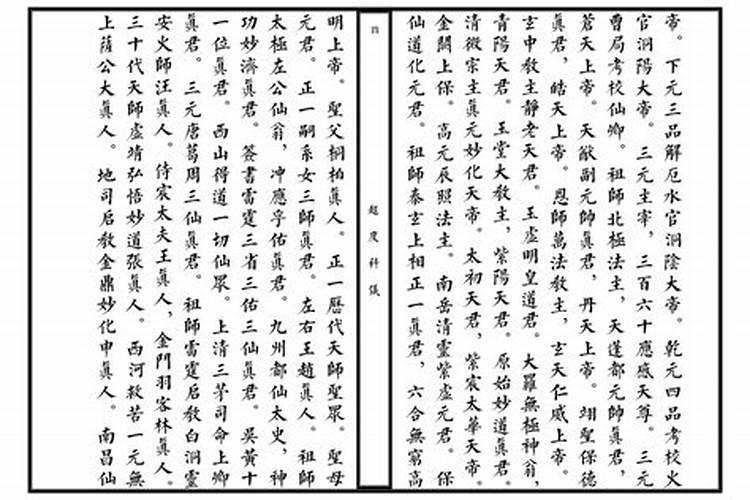 帝。下元三品解厄水官洞陰大帝。乾元四品考校火
官洞陽大帝。三元主宰，三百六十應感天尊。三元
曹局考校仙卿。祖師北極法主，天蓬都元帥眞君，
蒼天上帝。天猷副元帥眞君，丹天上帝。翊聖保德
眞君，皓天上帝。恩師萬法教主，玄天仁威上帝。
玄中教主靜老天君。玉虛明皇道君。大羅無極神翁，
青陽天君。玉堂大教主，紫陽天君。原始妙道眞君。
清微宗主眞元妙化天帝。太初天君，紫宸太華天帝。
金闕上保。高元辰照法主。南岳清靈紫虛元君。保
仙道化元君。祖師泰玄上相正一眞君，六合無窮高
超度科儀
四
明上帝。聖父桐柏眞人。正一歷代天師聖眾。聖母
元君。正一嗣系女三師眞君。左右王趙眞人。祖師
太極左公仙翁，冲應孚佑眞君。九州都仙太史，神
功妙濟眞君。簽書雷霆三省三佑三仙眞君。吳黃十
一位眞君。西山得道一切仙眾。上清三茅司命上卿
眞君。三元唐葛周三仙眞君。祖師雷霆启教白洞靈
安火師汪眞人。侍宸太夫王眞人，金門羽客林眞人。
三十代天師虛靖弘悟妙道張眞人。西河救苦一元無
上薩公大眞人。地司启教金鼎妙化申眞人。南昌仙